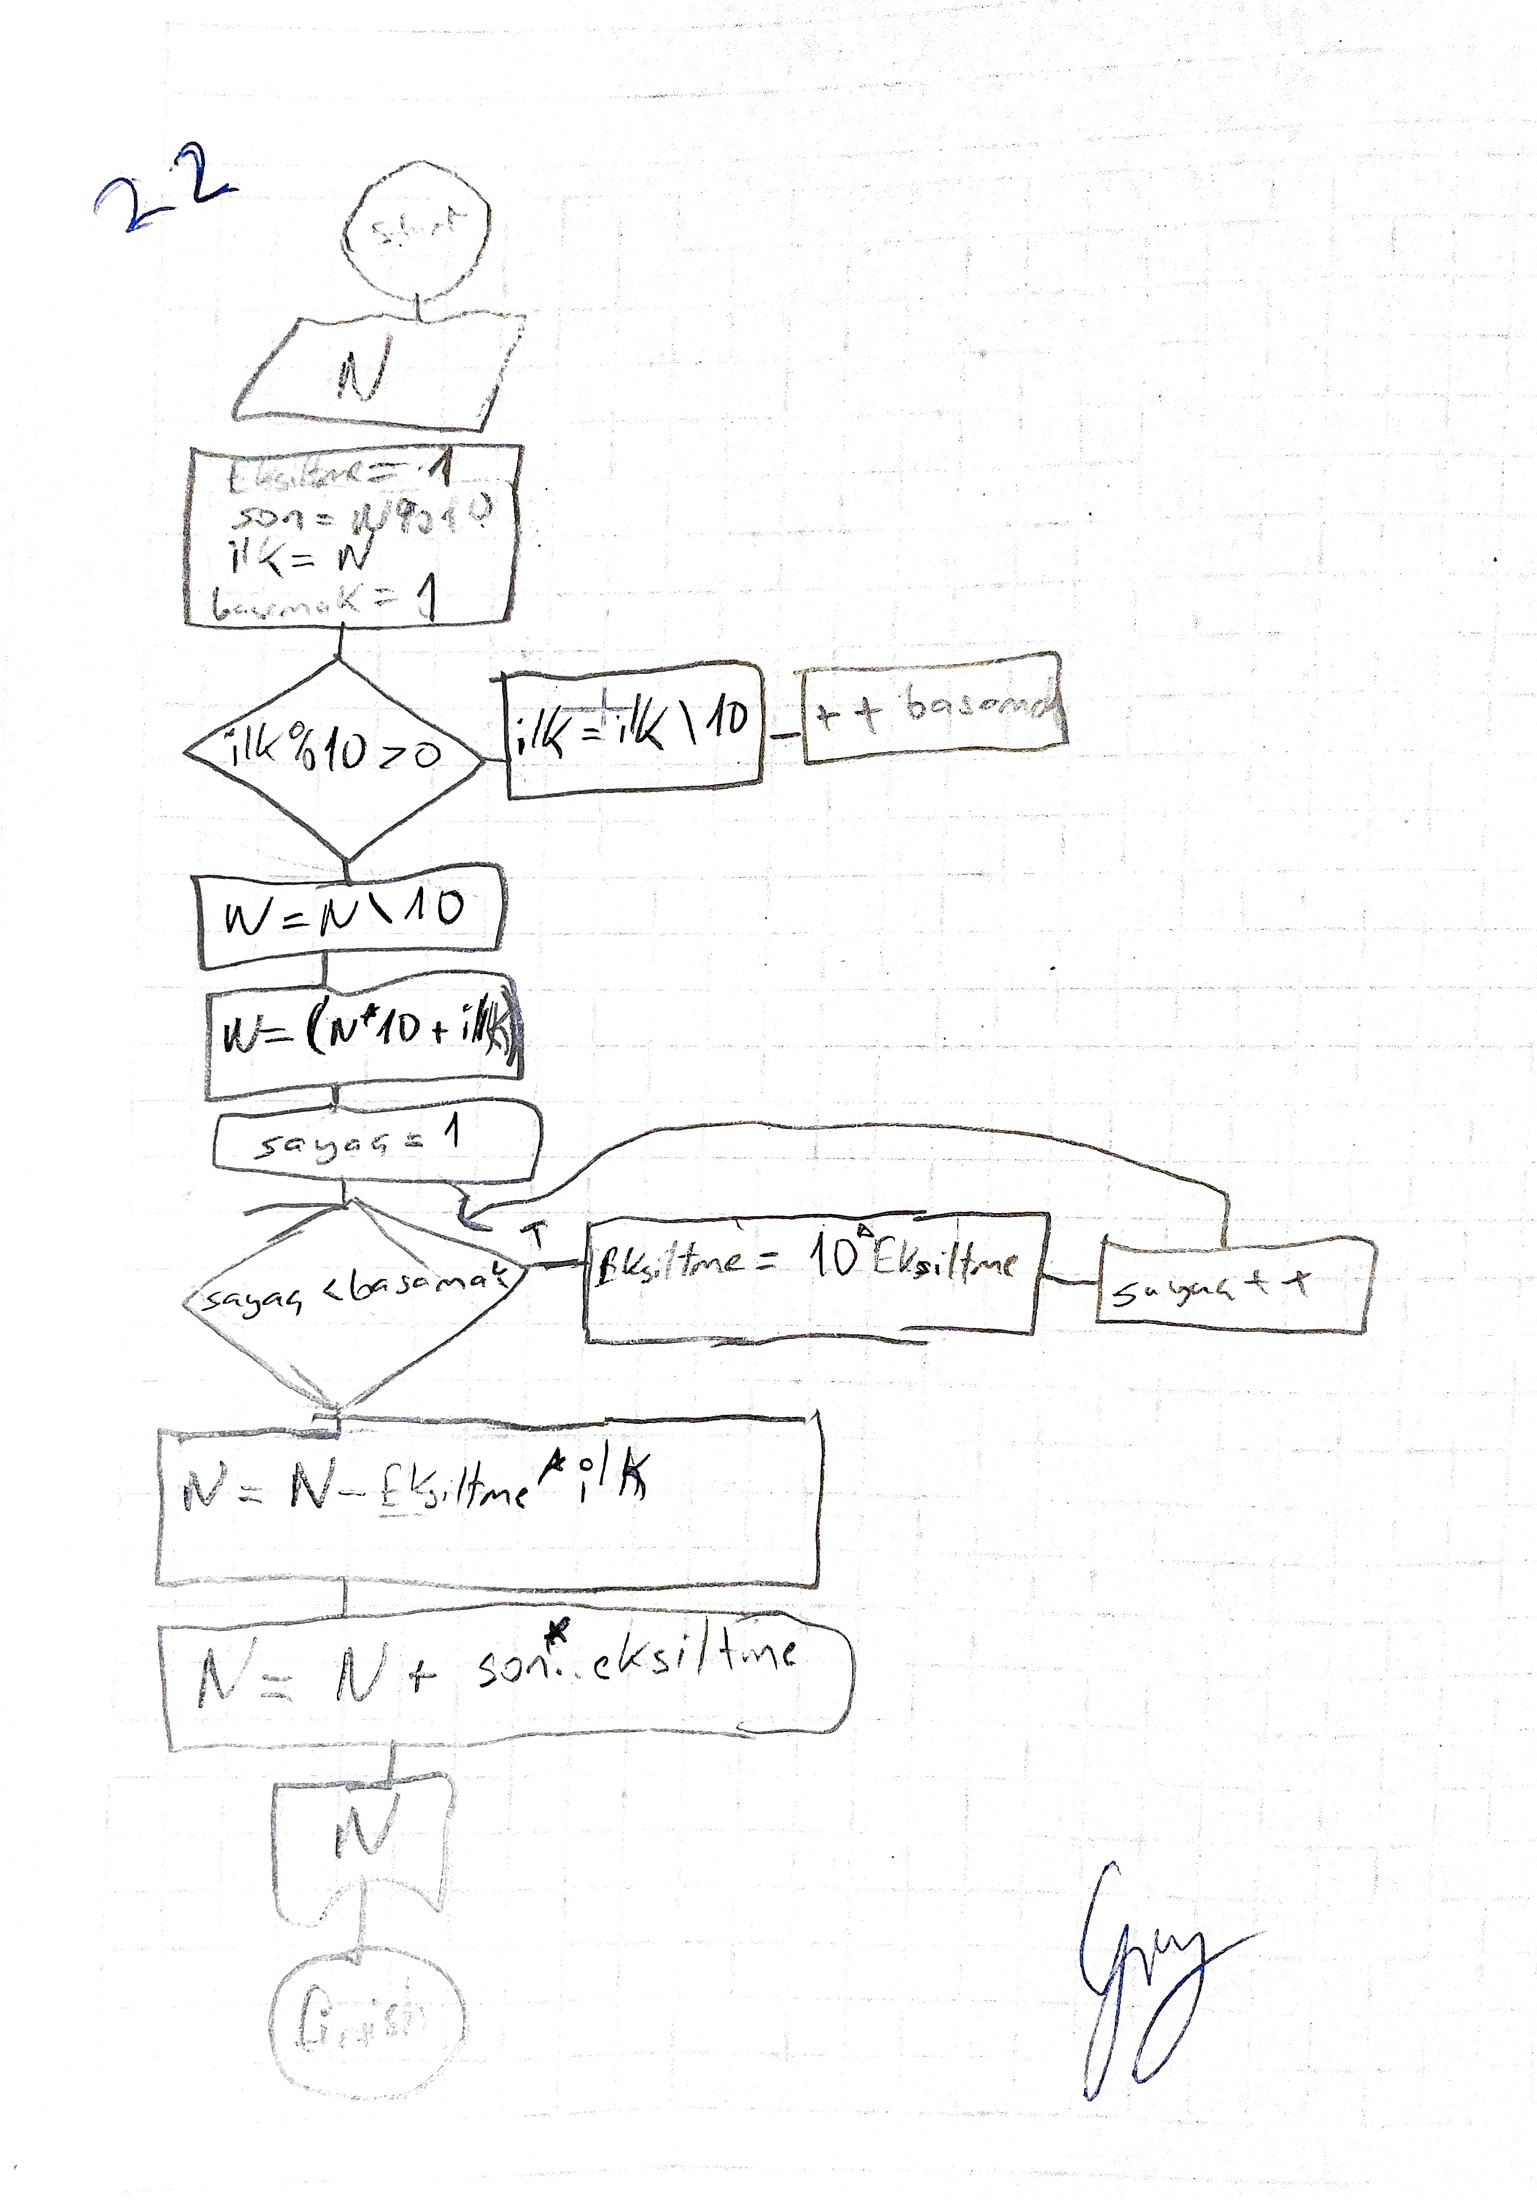 22
Start
N
Eksiltme = 1
son = N%10
ilk = N
basamak = 1
ilk%10>0
ilk = ilk \ 10
++ basamak
N = N \ 10
N = (N*10 + ilk)
sayaç = 1
sayaç < basamak
T
Eksiltme = 10*Eksiltme
sayaç ++
N = N - Eksiltme * ilk
N = N + son * eksiltme
N
finish